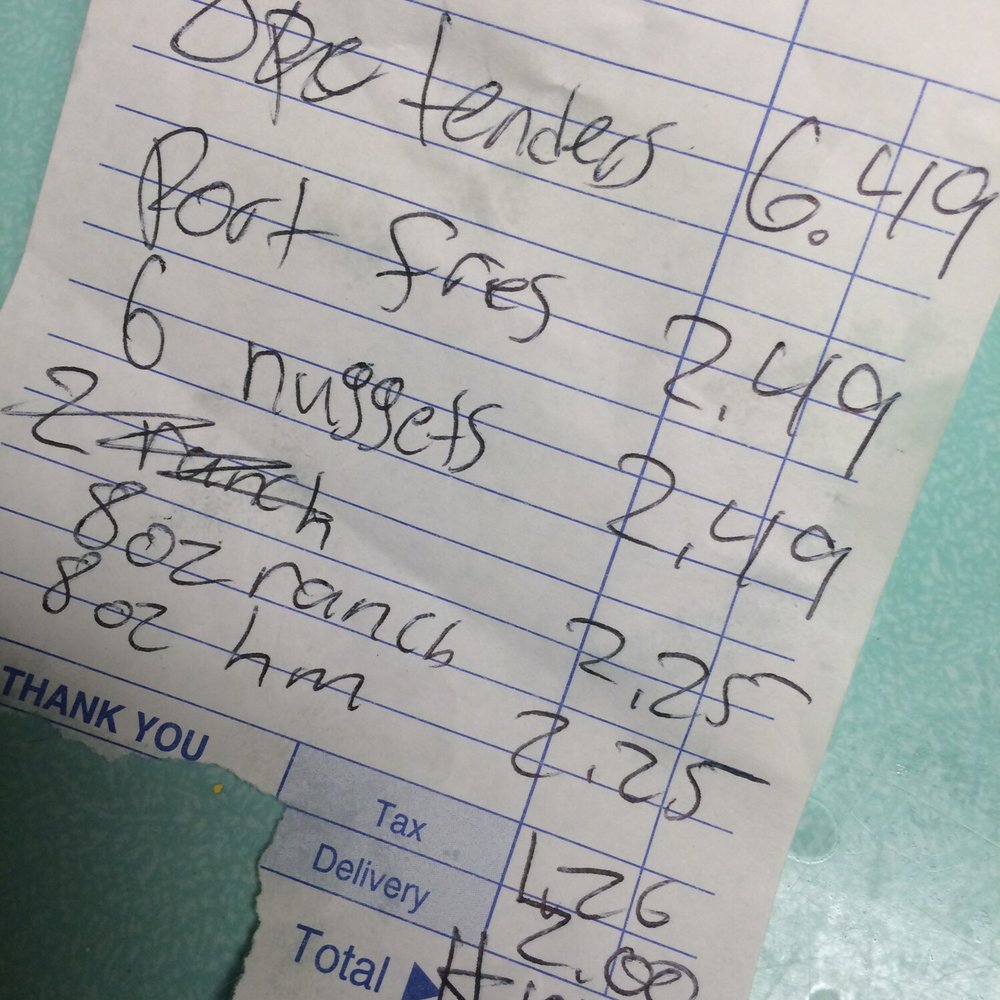 tenders 6.49
Port fres 2.49
6 nuggets 2,49
2 ranch
8oz ranch 2.25
8oz hm 2.25
THANK YOU
Tax 1.26
Delivery 2.00
Total